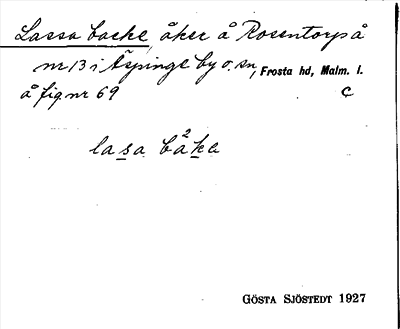 Lassa backe, åker å Rosentorp å
nr 13 i Äspinge by o. sn, Frosta hd, Malm. l.
å fig nr 69 c
lasa båka
2
GÖSTA SJÖSTEDT 1927